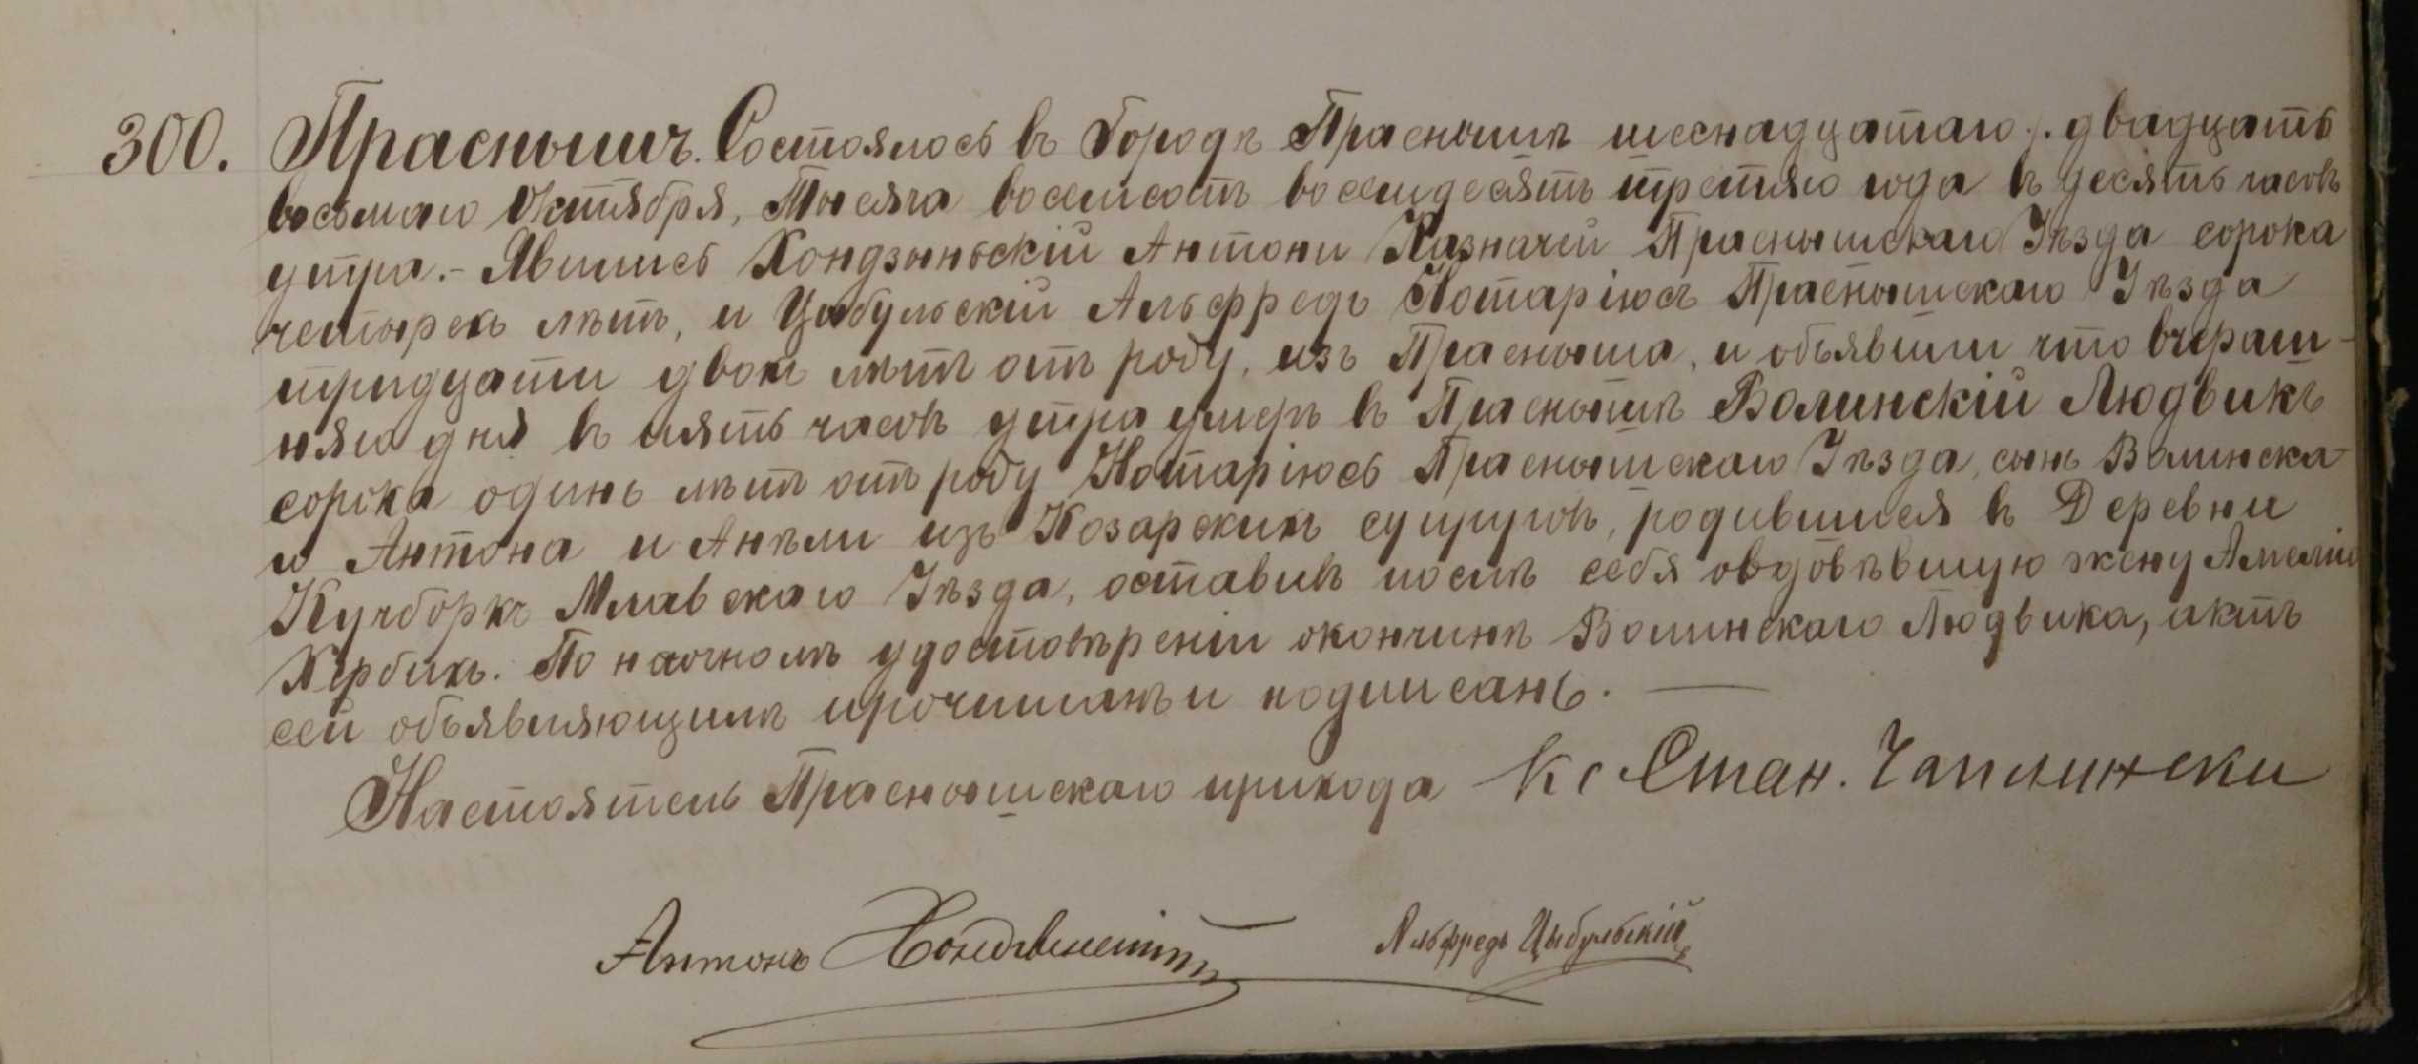 300. Праснышъ. Состоялось въ Городѣ Праснышѣ шеснадцатаго /. двадцать
восьмаго Октября, Тысяча восемсотъ восемдесятъ третяго года въ десять часовъ
утра.- Явились Хондзыньскій Антони Казначей Праснышскаго Уѣзда сорока
четырехъ лѣтъ, и Цыбульскій Альфредъ Нотаріюсъ Праснышскаго Уѣзда
тридцати двохъ лѣтъ отъ роду, изъ Прасныша, и объявили что вчераш-
няго дня въ пять часовъ утра умеръ въ Праснышѣ Волинскій Людвикъ
сорока одинъ лѣтъ отъ роду Нотаріюсъ Праснышскаго Уѣзда, сынъ Волинска-
го Антона и Анѣли изъ Козарскихъ супруговъ, родившийся въ Деревни
Кучборкъ Млавскаго Уѣзда, оставивъ послѣ себя овдовѣвшую жену Амелію
Хербихъ. По наочномъ удостовѣреніи окончинѣ Волинскаго Людвика, актъ
сей объявляющимъ прочитанъ и подписанъ. —
Настоятель Праснышскаго прихода Кс Стан. Чаплински
Антонъ Хондзынскій Альфредъ Цыбульскій